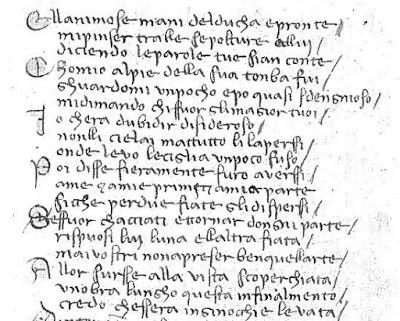 Ellanimose mani delducha epronte /
mipinser tralle sepolture allui /
dicendo leparole tue sian conte /
Chomio alpie della sua tomba fui
ghuardomi unpocho epo quasi sdengnioso /
midimando chifuor glimagior tuoi /
Io chera dubidir disideroso /
nonlli cielai mattutto lilapersi /
onde levo leciglia unpoco suso /
Poi disse fieramente furo aversi /
ame 7amie primi 7amia parte
siche perdue fiate glidispersi /
Sesfuor chacciati ettornar dongni parte /
rispuosi lui luna ellaltra fiata /
mai vostri nonapreser benquellarte /
Allor surse alla vista scoperchiata /
unobra lungho questa infinalmento /
credo chessera inginochie levata /